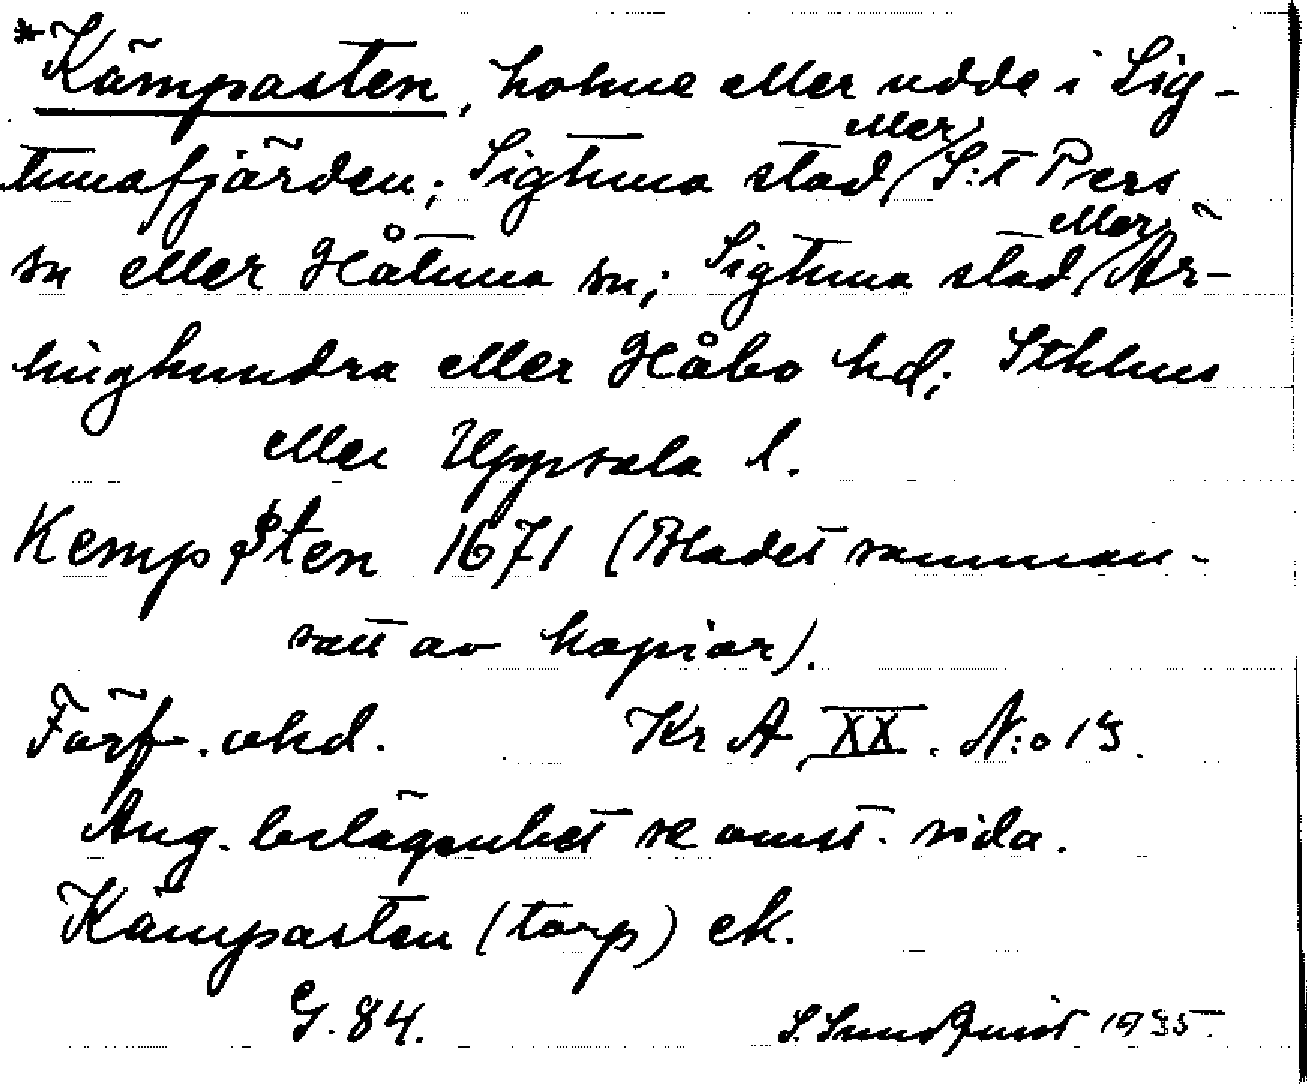 *Kämpasten, holme eller udde i Sig-
tunafjärden; Sigtuna stad eller S:t Pers
sn eller Håtuna sn; Sigtuna stad eller Är-
linghundra eller Håbo hd; Sthlms
eller Uppsala l.
Kemp Sten 1671 (Bladet samman-
satt av kopior).
Förf. okd. Kr A XX. N:o 13.
Ang. belägenhet se omst. sida.
Kämpasten (torp) ek.
G. 84.
S. Sundquist 1935.